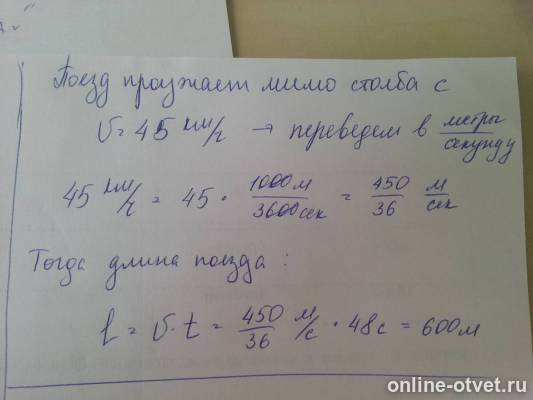 Поезд проезжает мимо столба с
V = 45 км/ч → переведем в метры/секунду
45 км/ч = 45 · 1000м/3600сек = 450/36 м/сек
Тогда длина поезда :
l = V·t = 450/36 м/с · 48с = 600м
online-otvet.ru